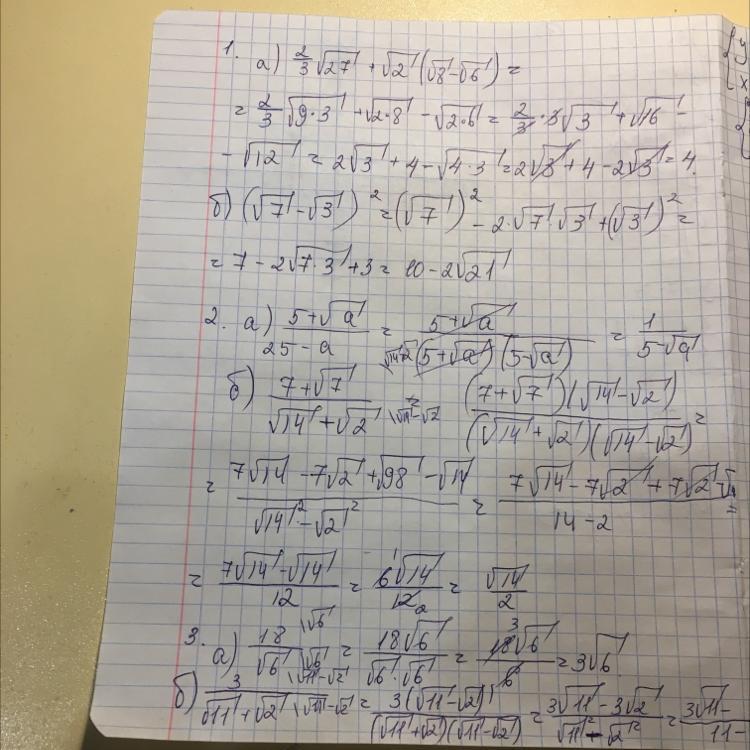 1. а) 2/3 √27 + √2 (√8 - √6) =
= 2/3 √9·3 + √2·8 - √2·6 = 2/3 · 3√3 + √16 -
- √12 = 2√3 + 4 - √4·3 = 2√3 + 4 - 2√3 = 4.
б) (√7 - √3)² = (√7)² - 2·√7·√3 + (√3)² =
= 7 - 2√7·3 + 3 = 10 - 2√21
2. а) (5+√a)/(25-a) = (5+√a)/((5+√a)(5-√a)) = 1/(5-√a)
б) (7+√7)/(√14+√2) \√14-√2 = ((7+√7)(√14-√2))/((√14+√2)(√14-√2)) =
= (7√14 - 7√2 + √98 - √14)/(√14² - √2²) = (7√14 - 7√2 + 7√2 - √14)/(14-2) =
= (7√14 - √14)/12 = 6√14/12 = √14/2
3. а) 18/√6 \√6 = 18√6/(√6·√6) = 18√6/6 = 3√6.
б) 3/(√11+√2) \√11-√2 = 3(√11-√2)/((√11+√2)(√11-√2)) = (3√11-3√2)/(√11²-√2²) = 3√11-/11-